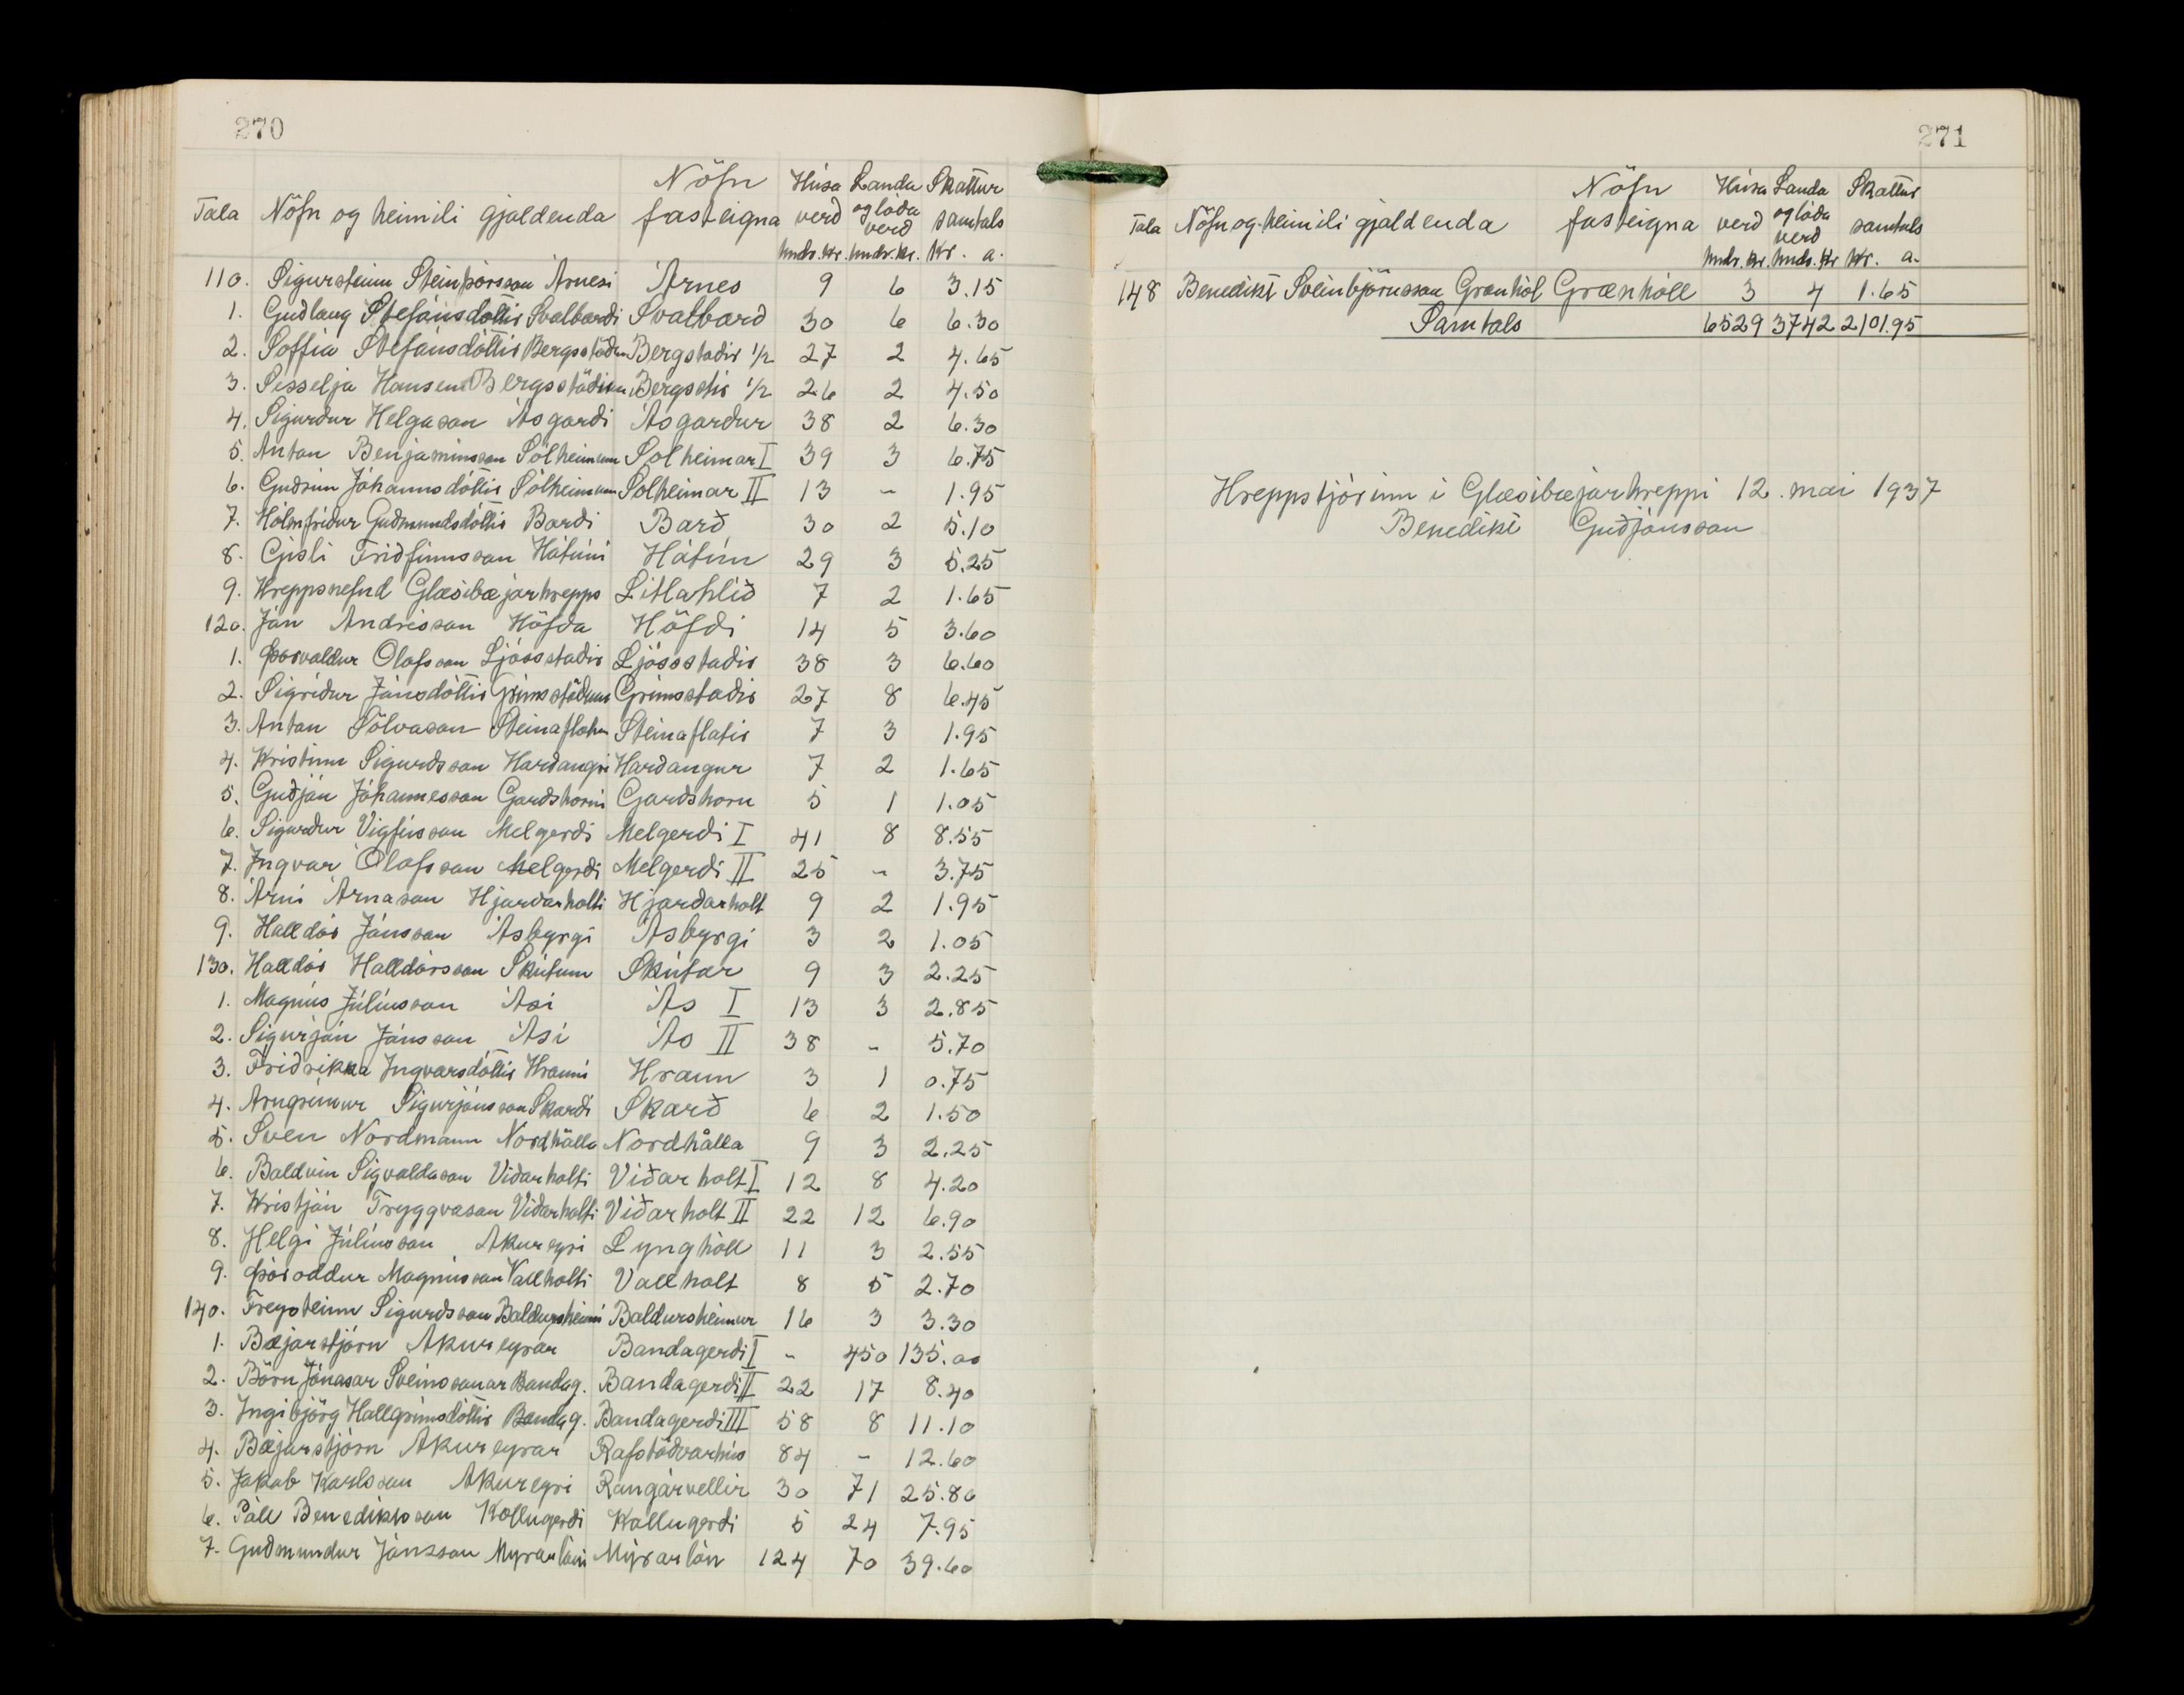 270
Tala Nöfn og heimili gjaldenda Nöfn fasteigna Húsa verð hndr. kr. Landa og lóða verð hndr. kr. Skattur samtals Kr. a.
110. Sigursteinn Steinþórsson Árnesi Árnes 9 6 3.15
1. Guðlaug Stefánsdóttir Svalbarði Svalbarð 30 6 6.30
2. Soffía Stefánsdóttir Bergsstöðum Bergstaðir 1/2 27 2 4.65
3. Sesselja Hansen Bergsstöðum Bergsstir 1/2 26 2 4.50
4. Sigurður Helgason Ásgarði Ásgarður 38 2 6.30
5. Anton Benjamínsson Sólheimum Sólheimar I 39 3 6.75
6. Guðrún Jóhannsdóttir Sólheimum Sólheimar II 13 - 1.95
7. Hólmfríður Guðmundsdóttir Barði Barð 30 2 5.10
8. Gísli Friðfinnsson Hátúni Hátún 29 3 5.25
9. Hreppsnefnd Glæsibæjarhrepps Litlahlíð 7 2 1.65
120. Jón Andrésson Höfða Höfði 14 5 3.60
1. Þorvaldur Ólafsson Ljósstaðir Ljóssstaðir 38 3 6.60
2. Sigríður Jónsdóttir Grímsstöðum Grímsstaðir 27 8 6.45
3. Anton Sölvason Steinaflötum Steinaflatir 7 3 1.95
4. Kristinn Sigurðsson Harðangri Harðangur 7 2 1.65
5. Guðjón Jóhannesson Garðshorni Garðshorn 5 1 1.05
6. Sigurður Vigfússon Melgerði Melgerði I 41 8 8.55
7. Ingvar Ólafsson Melgerði Melgerði II 25 - 3.75
8. Árni Árnason Hjarðarholti Hjarðarholt 9 2 1.95
9. Halldór Jónsson Ásbyrgi Ásbyrgi 3 2 1.05
130. Halldór Halldórsson Skútum Skútar 9 3 2.25
1. Magnús Júlíusson Ási Ás I 13 3 2.85
2. Sigurjón Jónsson Ási Ás II 38 - 5.70
3. Friðrikka Ingvarsdóttir Hrauni Hraun 3 1 0.75
4. Arngrímur Sigurjónsson Skarði Skarð 6 2 1.50
5. Sven Nordmann Nordhålla Nordhålla 9 3 2.25
6. Baldvin Sigvaldason Viðarholti Viðarholt I 12 8 4.20
7. Kristján Tryggvason Viðarholti Viðarholt II 22 12 6.90
8. Helgi Júlíusson Akureyri Lynghóll 11 3 2.55
9. Þóroddur Magnússon Vallholti Vallholt 8 5 2.70
140. Freysteinn Sigurðsson Baldursheimi Baldursheimur 16 3 3.30
1. Bæjarstjórn Akureyrar Bandagerði I - 450 135.00
2. Börn Jónasar Sveinssonar Bandag. Bandagerði II 22 17 8.40
3. Ingibjörg Hallgrímsdóttir Bandag. Bandagerði III 58 8 11.10
4. Bæjarstjórn Akureyrar Rafstöðvarhús 84 - 12.60
5. Jakob Karlsson Akureyri Rangárvellir 30 71 25.80
6. Páll Benediktsson Kollugerði Kollugerði 5 24 7.95
7. Guðmundur Jónsson Mýrarlóni Mýrarlón 124 70 39.60
271
Tala Nöfn og heimili gjaldenda Nöfn fasteigna Húsa verð hndr. kr. Landa og lóða verð hndr. kr Skattur samtals Kr. a.
148 Benedikt Sveinbjörnsson Grænhól Grænhóll 3 4 1.65
Samtals 6529 3742 2101.95
Hreppstjórinn í Glæsibæjarhreppi 12. maí 1937
Benedikt Guðjónsson